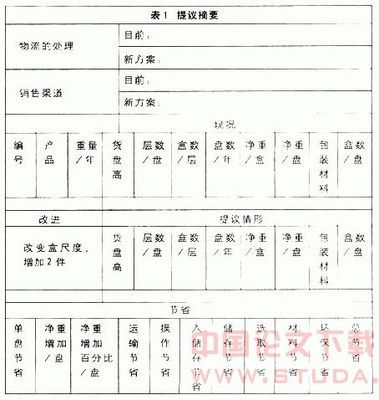 表1 提议摘要
物流的处理
目前:
新方案:
销售渠道
目前:
新方案:
现况
编号 产品 重量/年 货盘高 层数/盘 盒数/层 盘数/年 净重/盒 净重/盘 包装材料 盒数/盘
改进 提议情形
改变盒尺度,
增加2件
货盘高 层数/盘 盒数/层 盘数/年 净重/盒 净重/盘 包装材料 盒数/盘
节省
单盘节省 净重增加/盘 净重增加百分比/盘 运输节省 操作节省 入储存节省 储存节省 选取节省 材料节省 环保节省 总节省
中国论文下载
WWW.STUDA.